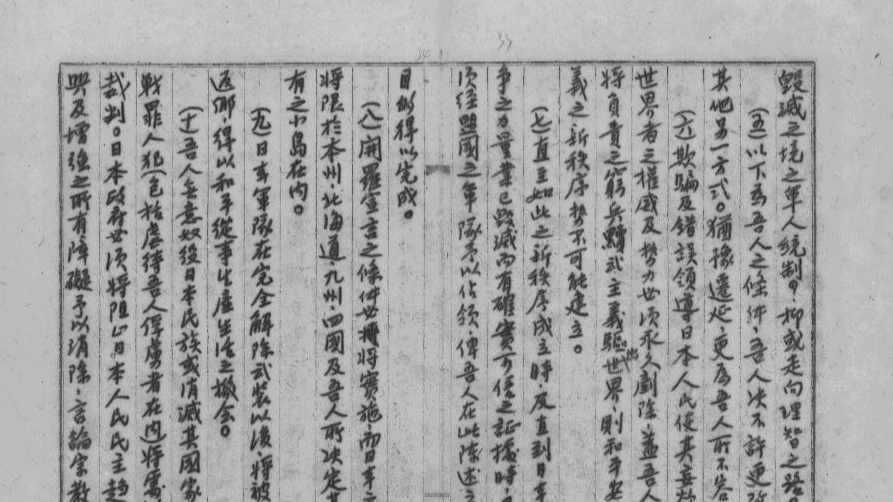 毀滅之境之軍人統制，抑或走向理智之路
（五）以下為吾人之條件，吾人决不許更改
其他另一方式。猶豫遷延，更為吾人所不容
（六）欺騙及錯誤領導日本人民使其妄欲
世界者之權威及勢力必須永久剷除，蓋吾人
將負責之窮兵黷武主義驅出世界，則和平安
義之新秩序勢不可能建立。
（七）直至如此之新秩序成立時，及直到日本
爭之力量業已毀滅而有確實可信之証據時，
須經盟國之軍隊予以佔領，俾吾人在此陳述之
目的得以完成。
（八）開羅宣言之條件必將實施，而日本之
將限於本州，北海道，九州，四國及吾人所决定其
有之小島在內。
（九）日本軍隊在完全解除武裝以後，將被
返鄉，得以和平從事生產生活之機会。
（十）吾人無意奴役日本民族或消滅其國家
戰罪人犯（包括虐待吾人俘虜者在內）將處
裁判。日本政府必須將阻止日本人民民主趨
興及增強之所有障礙予以消除，言論宗教